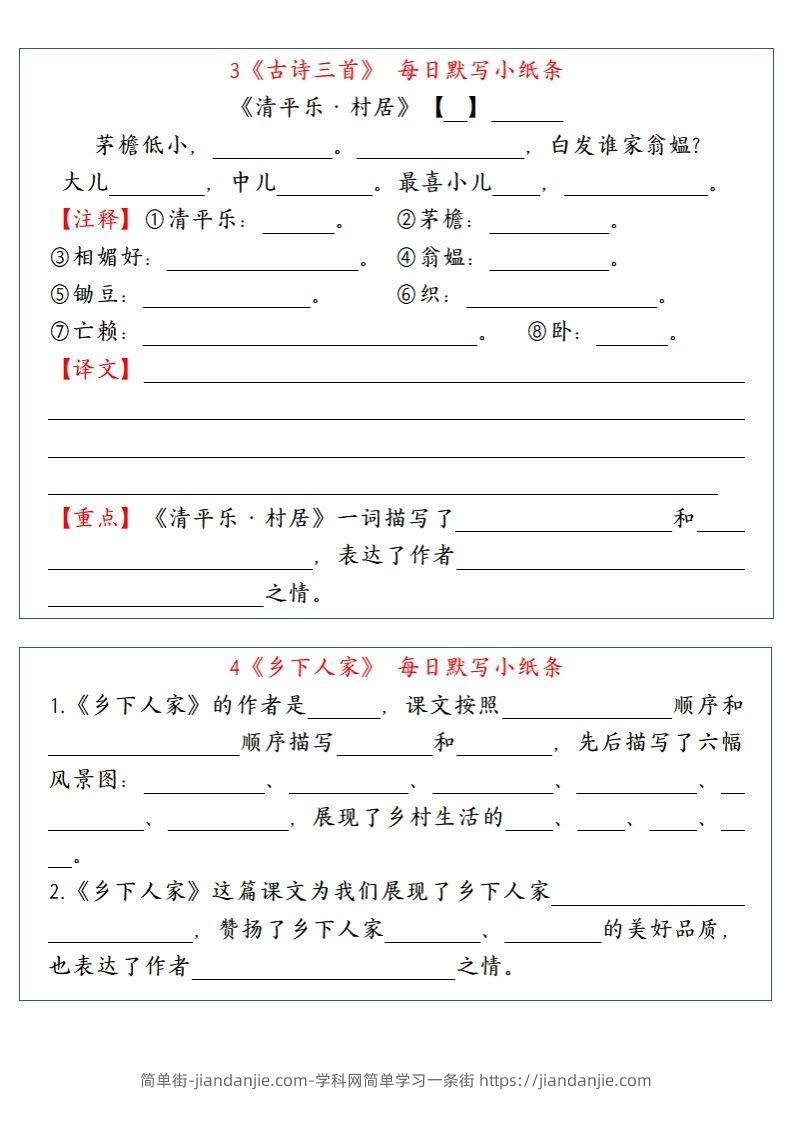 3《古诗三首》 每日默写小纸条
《清平乐·村居》【__】______
茅檐低小，__________。______________，白发谁家翁媪?
大儿________，中儿________。最喜小儿____，____________。
【注释】①清平乐：______。 ②茅檐：__________。
③相媚好：________________。 ④翁媪：__________。
⑤锄豆：______________。 ⑥织：________________。
⑦亡赖：____________________________。 ⑧卧：______。
【译文】__________________________________________________
__________________________________________________________
__________________________________________________________
________________________________________________________
【重点】《清平乐·村居》一词描写了__________________和____
______________________，表达了作者________________________
__________________之情。
4《乡下人家》 每日默写小纸条
1.《乡下人家》的作者是______，课文按照______________顺序和
________________顺序描写________和________，先后描写了六幅
风景图：__________、__________、__________、__________、__
________、__________，展现了乡村生活的____、____、____、__
__。
2.《乡下人家》这篇课文为我们展现了乡下人家________________
____________，赞扬了乡下人家________、________的美好品质，
也表达了作者______________________之情。
简单街-jiandanjie.com-学科网简单学习一条街 https://jiandanjie.com